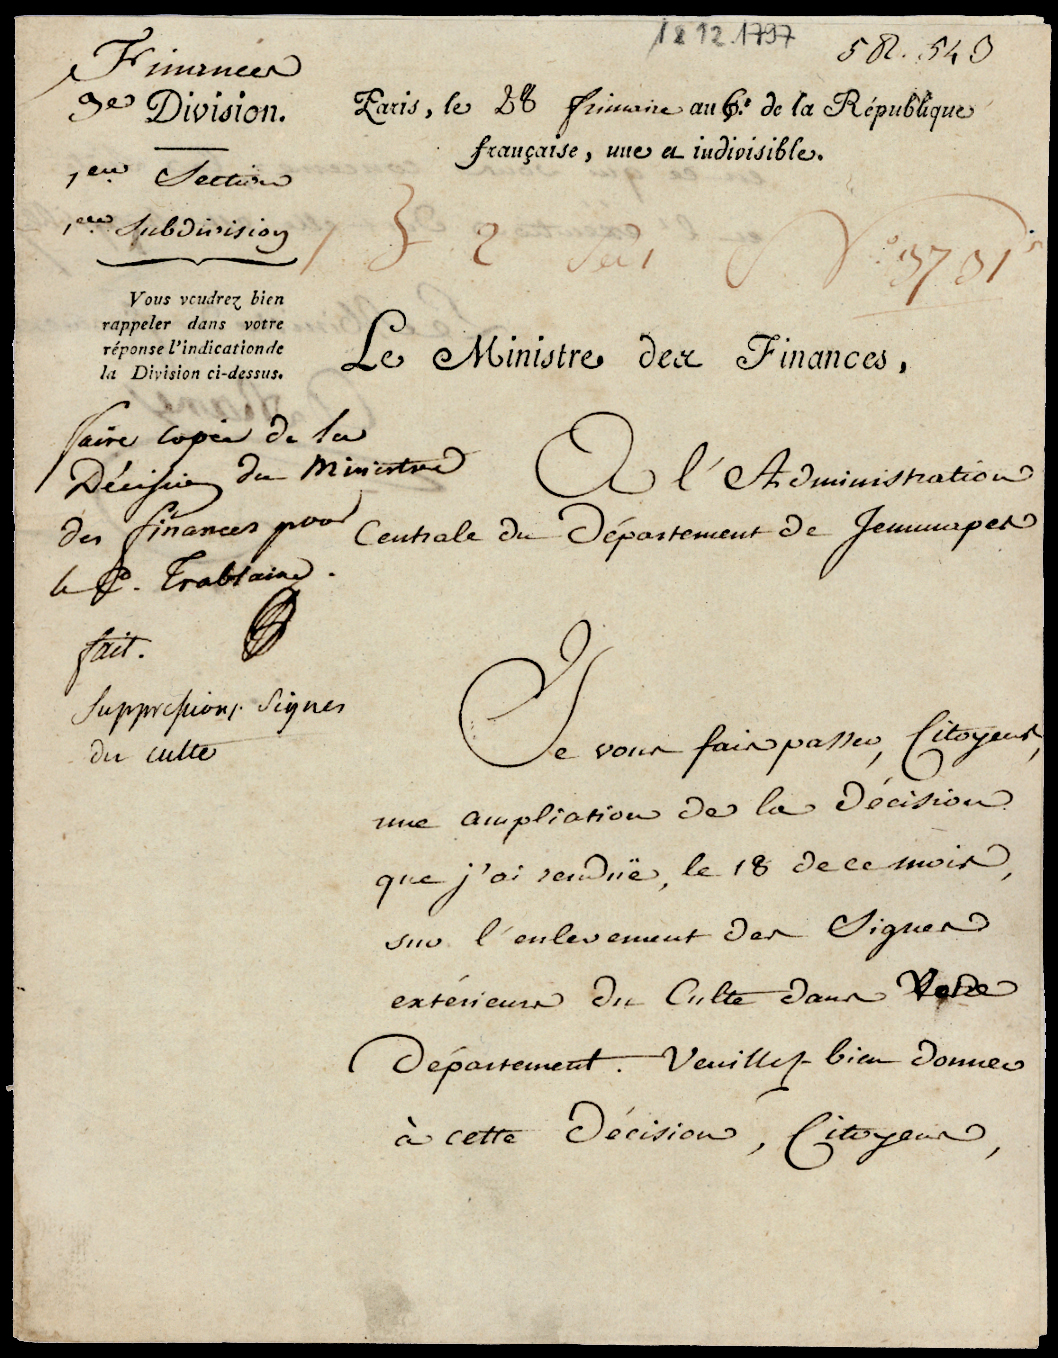 18 12.1797
582.543
Finances
3e Division.
1ere Section
1ere Subdivision
Paris, le 28 frimaire an 6.e de la République
française, une et indivisible.
3 2 N.o 3731
Vous voudrez bien
rappeler dans votre
réponse l'indication de
la Division ci-dessus.
Le Ministre des Finances,
faire copier de la
Décision du Ministre
des finances pour
le C.
fait.
Suppressions Signes
du culte
A l'Administration
Centrale du Département de Jemmapes
Je vous fais passer, Citoyens,
une ampliation de la décision
que j'ai renduë, le 18 de ce mois,
sur l'enlevement des Signes
extérieurs du Culte dans Votre
Département. Veuillez bien donner
à cette Décision, Citoyens,